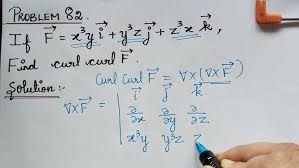 PROBLEM 82.
If F⃗ = x³y i⃗ + y³z j⃗ + z³x k⃗,
Find curl curl F⃗.
Solution:-
curl curl F⃗ = ∇×(∇×F⃗)
∇×F⃗ = | i⃗ j⃗ k⃗
∂/∂x ∂/∂y ∂/∂z
x³y y³z z